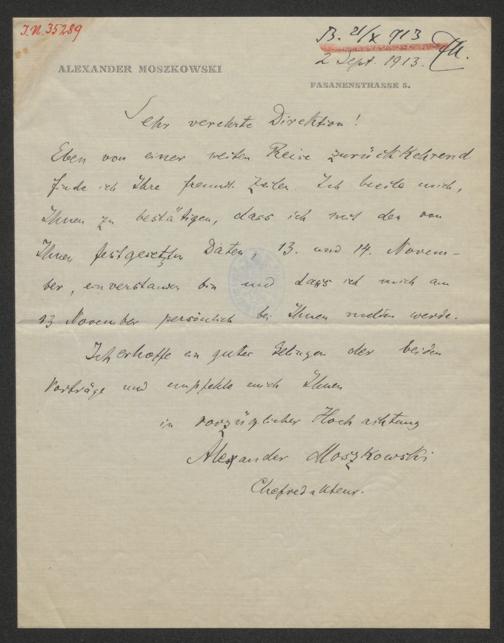 I.N. 35289
B. 21/X 913
2 Sept. 1913.
ALEXANDER MOSZKOWSKI
FASANENSTRASSE 5.
Sehr verehrte Direktion!
Eben von einer weiten Reise zurückkehrend
finde ich Ihre freundl. Zeilen. Ich beeile mich,
Ihnen zu bestätigen, dass ich mit den von
Ihnen festgesetzten Daten, 13. und 14. Novem-
ber, einverstanden bin und dass ich mich am
13 November persönlich bei Ihnen melden werde.
Ich erhoffe ein gutes Gelingen der beiden
Vorträge und empfehle mich Ihnen
in vorzüglicher Hochachtung
Alexander Moszkowski
Chefredakteur.